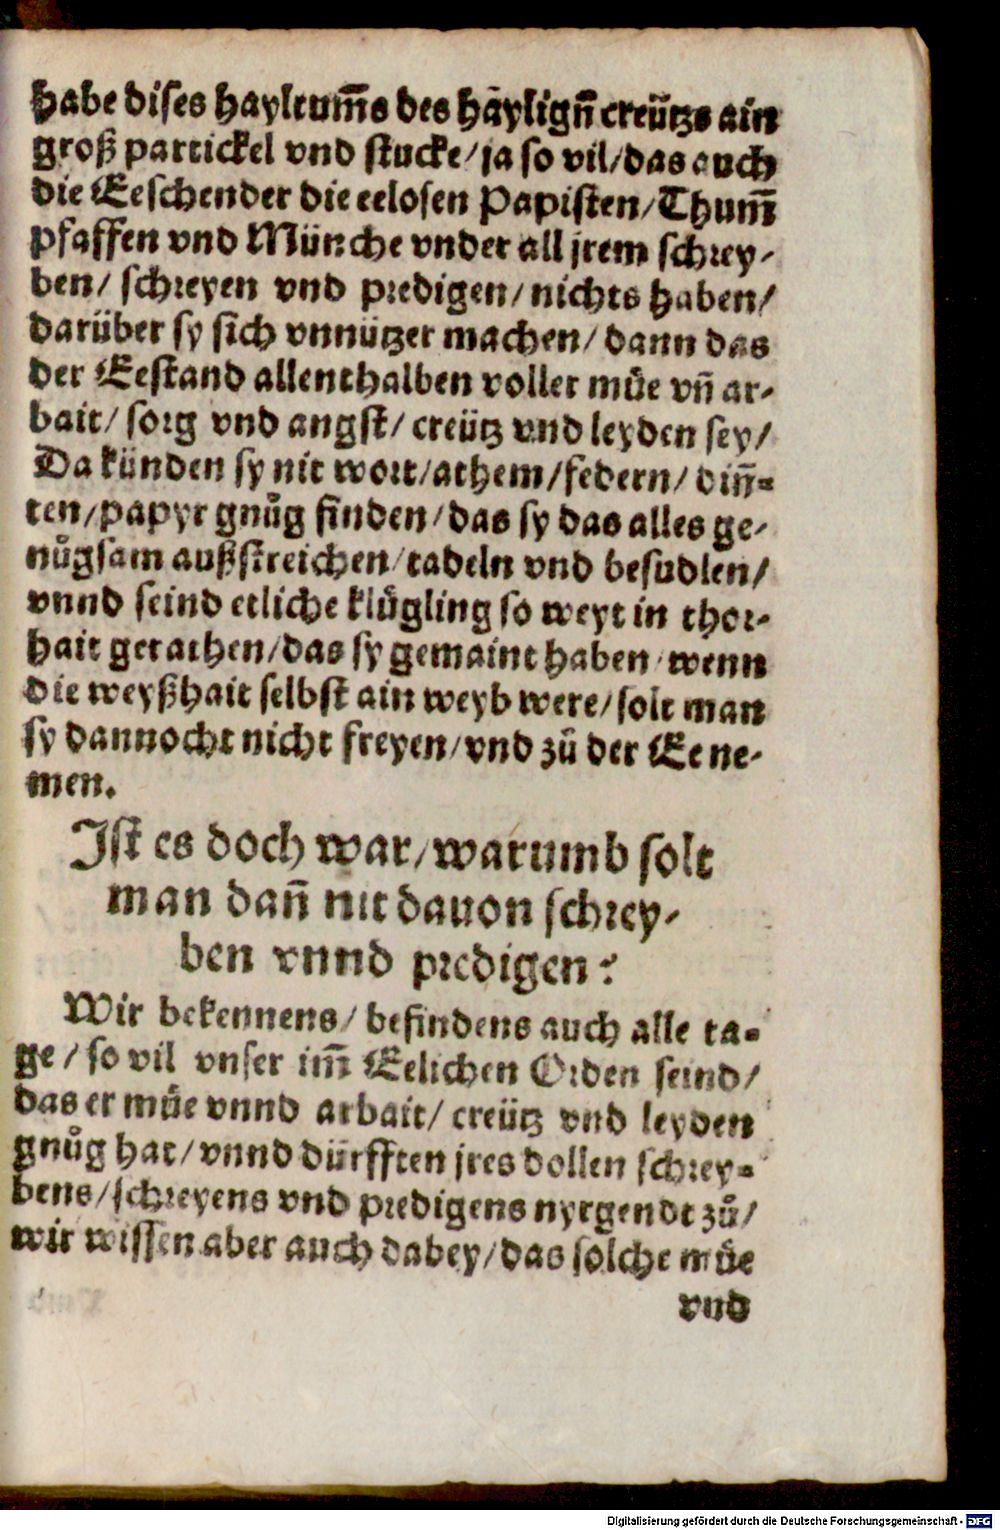 habe dises hayltum̄s des hàylign̄ creützs ain
groß partickel vnd stucke/ ja so vil/ das auch
die Eeschender die eelosen Papisten/ Thum̄
pfaffen vnd Münche vnder all jrem schrey-
ben/ schreyen vnd predigen/ nichts haben/
darüber sy sich vnnützer machen/ dann das
der Eestand allenthalben voller müe vn̄ ar-
bait/ sorg vnd angst/ creütz vnd leyden sey/
Da künden sy nit wort/ athem/ federn/ din̄-
ten/ papyr gnůg finden/ das sy das alles ge-
nůgsam außstreichen/ tadeln vnd besudlen/
vnnd seind etliche klůgling so weyt in thor-
hait gerathen/ das sy gemaint haben/ wenn
die weyßhait selbst ain weyb were/ solt man
sy dannocht nicht freyen/ vnd zů der Ee ne-
men.
Ist es doch war/ warumb solt
man dan̄ nit dauon schrey-
ben vnnd predigen?
Wir bekennens/ befindens auch alle ta-
ge/ so vil vnser im̄ Eelichen Orden seind/
das er müe vnnd arbait/ creütz vnd leyden
gnůg hat/ vnnd dürfften jres dollen schrey-
bens/ schreyens vnd predigens nyrgendt zů/
wir wissen aber auch dabey/ das solche müe
vnd
Digitalisierung gefördert durch die Deutsche Forschungsgemeinschaft - DFG